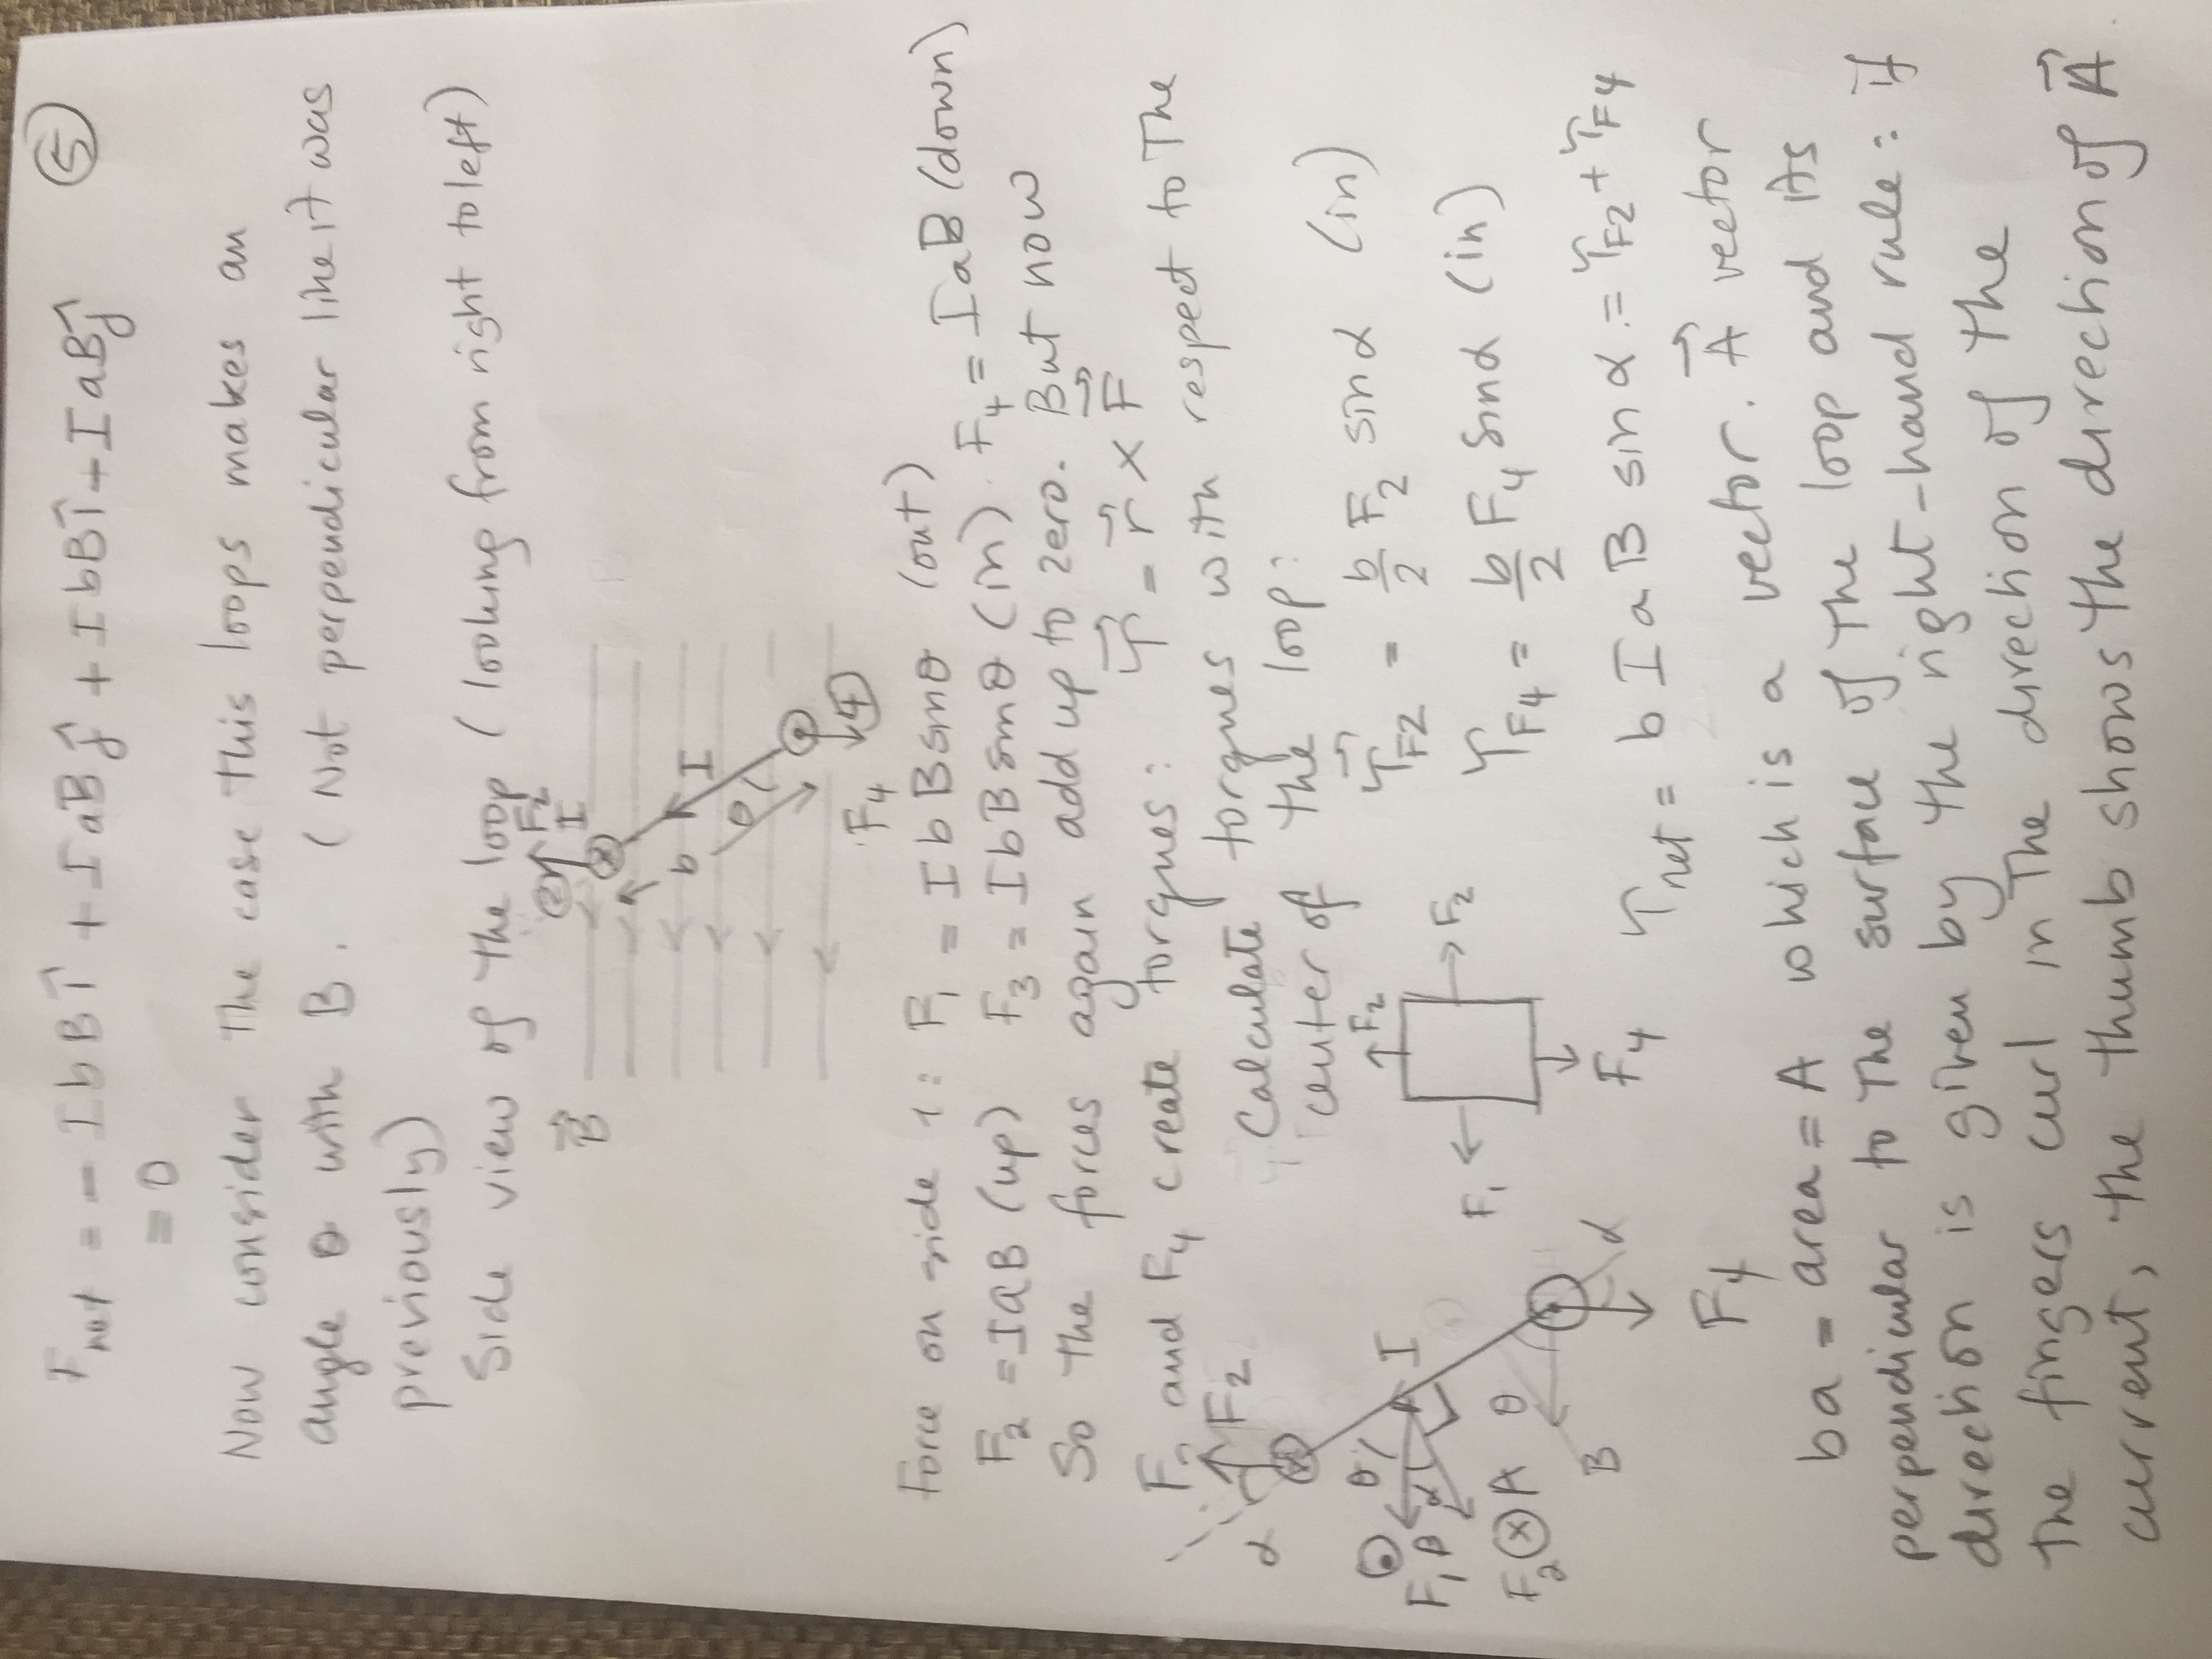 ⑤
F_net = - I b B î + I a B ĵ + I b B î - I a B ĵ
= 0
Now consider the case this loops makes an
angle θ with B. ( Not perpendicular like it was
previously)
Side view of the loop ( looking from right to left)
② F₂
B⃗ I
⊗
b I
θ
⊙
F₄ ④
Force on side 1: F₁ = I b B sinθ (out)
F₂ = I a B (up) F₃ = I b B sinθ (in). F₄ = I a B (down)
So the forces again add up to zero. But now
F₂ and F₄ create torques: τ⃗ = r⃗ × F⃗
Calculate torques with respect to the
center of the loop:
α F₂
⊗
⊙ θ I
F₁ B α
F₂ ⊗ A θ
B α
F₄
F₂
F₁ F₂
F₄
τ⃗_F2 = b/2 F₂ sinα (in)
τ_F4 = b/2 F₄ sinα (in)
τ_net = b I a B sin α = τ_F2 + τ_F4
ba = area = A which is a vector. A⃗ vector
perpendicular to the surface of the loop and its
direction is given by the right-hand rule: if
the fingers curl in the direction of the
current, the thumb shows the direction of A⃗.